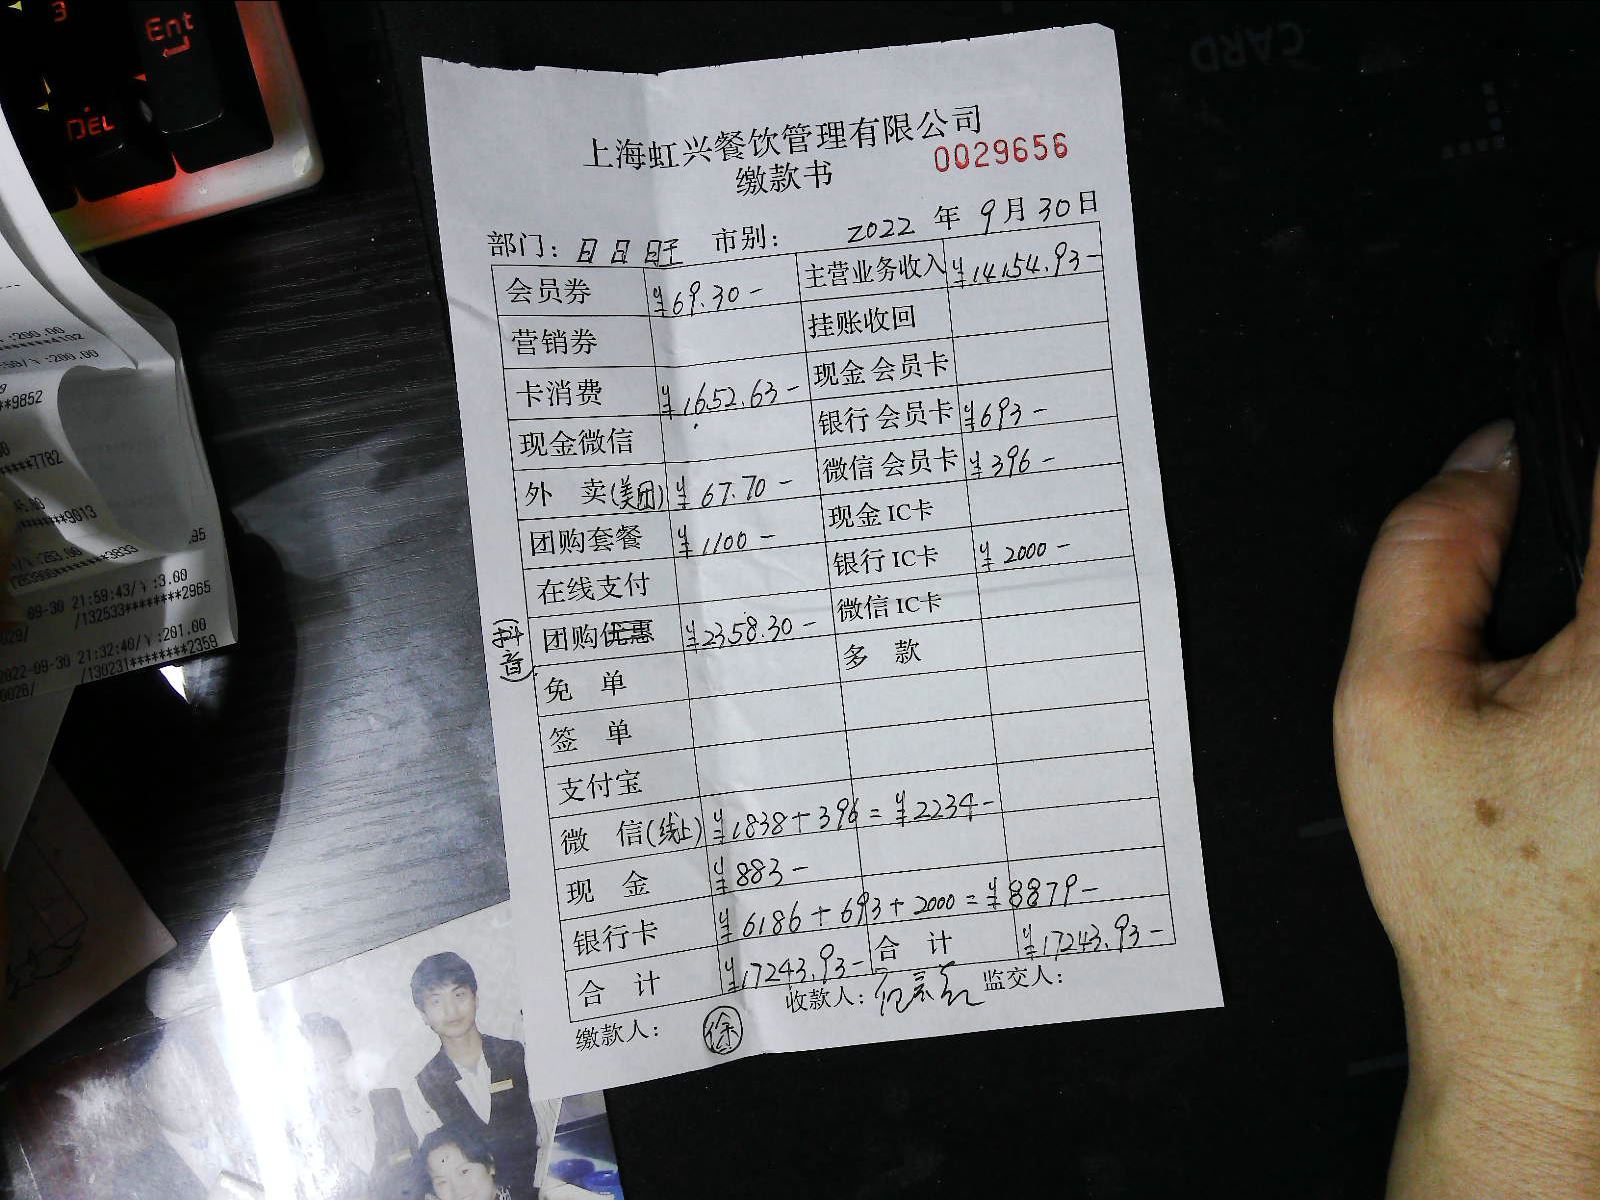 3
Ent
DEL
CARD
:200.00
********4192
:50/¥:200.00
**9852
*****7782
45.00
****9013
/¥:263.00
/263906********3833
09-30 21:59:43/¥:3.00
/132533********2965
2022-09-30 21:32:40/¥:201.00
/130231********2359
上海虹兴餐饮管理有限公司
缴款书 0029656
部门: 日日旺 市别: 2022 年 9 月 30 日
会员券 ¥69.30- 主营业务收入 ¥14154.93-
营销券 挂账收回
卡消费 ¥1652.63- 现金会员卡
现金微信 银行会员卡 ¥693-
外 卖(美团) ¥67.70- 微信会员卡 ¥396-
团购套餐 ¥1100- 现金IC卡
在线支付 银行IC卡 ¥2000-
(抖音) 团购优惠 ¥2358.30- 微信IC卡
免 单 多 款
签 单
支付宝
微 信(线上) ¥1838+396=¥2234-
现 金 ¥883-
银行卡 ¥6186+693+2000=¥8879-
合 计 ¥17243.93- 合 计 ¥17243.93-
缴款人: 徐 收款人: 监交人: